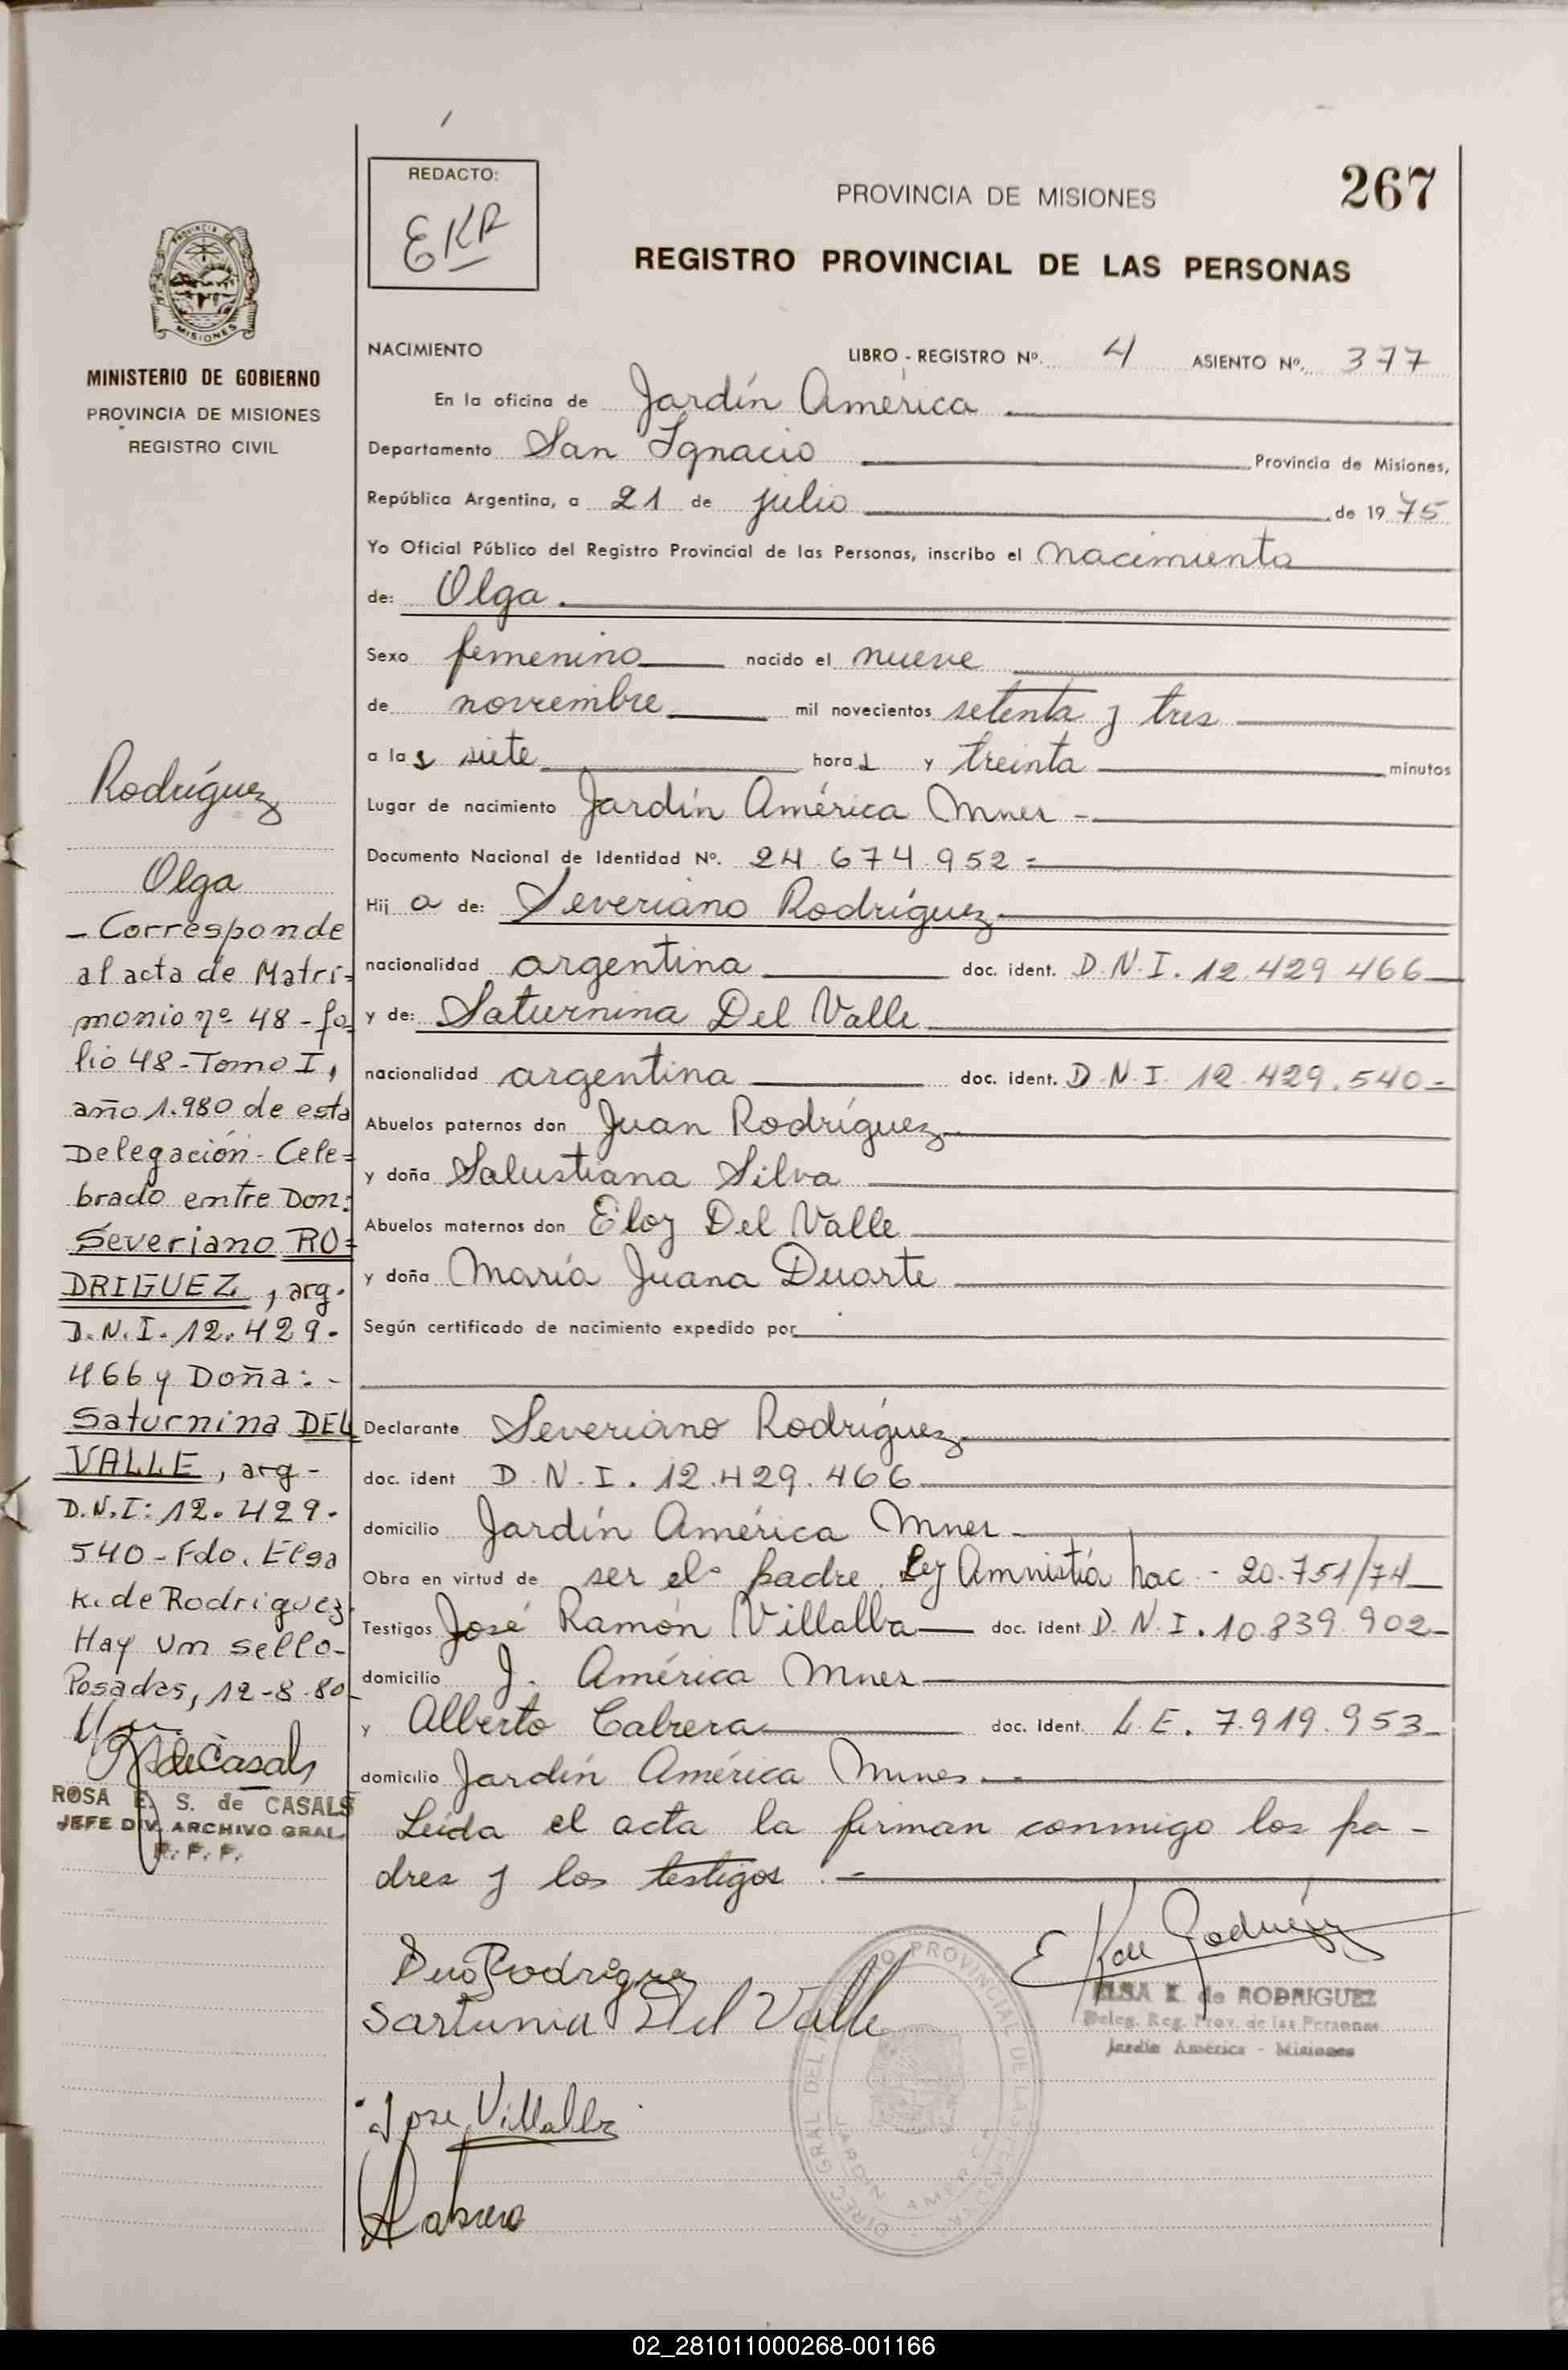 REDACTO:
EKR
PROVINCIA DE MISIONES
267
REGISTRO PROVINCIAL DE LAS PERSONAS
PROVINCIA DE
MISIONES
MINISTERIO DE GOBIERNO
PROVINCIA DE MISIONES
REGISTRO CIVIL
NACIMIENTO LIBRO - REGISTRO Nº. 4 ASIENTO Nº. 377
En la oficina de Jardín América
Departamento San Ignacio Provincia de Misiones,
República Argentina, a 21 de julio de 1975
Yo Oficial Público del Registro Provincial de las Personas, inscribo el nacimiento
de: Olga.
Sexo femenino nacido el nueve
de noviembre mil novecientos setenta y tres
a las siete horas y treinta minutos
Lugar de nacimiento Jardín América Mnes -
Documento Nacional de Identidad Nº. 24.674.952 =
Hij a de: Severiano Rodríguez
nacionalidad argentina doc. ident. D.N.I. 12.429.466
y de: Saturnina Del Valle
nacionalidad argentina doc. ident. D.N.I. 12.429.540 -
Abuelos paternos don Juan Rodríguez
y doña Salustiana Silva
Abuelos maternos don Eloy Del Valle
y doña María Juana Duarte
Según certificado de nacimiento expedido por
Declarante Severiano Rodríguez
doc. ident D.N.I. 12.429.466
domicilio Jardín América Mnes
Obra en virtud de ser el padre. Ley Amnistía nac - 20.751/74
Testigos José Ramón Villalba doc. ident D.N.I. 10.839.902
domicilio J. América Mnes
y Alberto Cabrera doc. Ident. L.E. 7.919.953
domicilio Jardín América Mnes.
Leída el acta la firman conmigo los pa-
dres y los testigos. -
Rodríguez
Olga
- Corresponde
al acta de Matri=
monio nº 48 - fo
lio 48 - Tomo I,
año 1.980 de esta
Delegación - Cele=
brado entre Don:
Severiano RO=
DRIGUEZ, arg.
D.N.I. 12.429.
466 y Doña: -
Saturnina DEL
VALLE, arg -
D.N.I: 12.429.
540 - Fdo. Elsa
K. de Rodriguez.
Hay un sello -
Posadas, 12-8-80
de Casals
ROSA E. S. de CASALS
JEFE DIV. ARCHIVO GRAL.
R. P. P.
Rodrigue
Sartunia Del Valle
Jose Villalba
ELSA K. de RODRIGUEZ
Deleg. Reg. Prov. de las Personas
Jardín América - Misiones
DIREC. GRAL. DEL REGISTRO PROVINCIAL DE LAS PERSONAS
JARDIN AMERICA
02_281011000268-001166